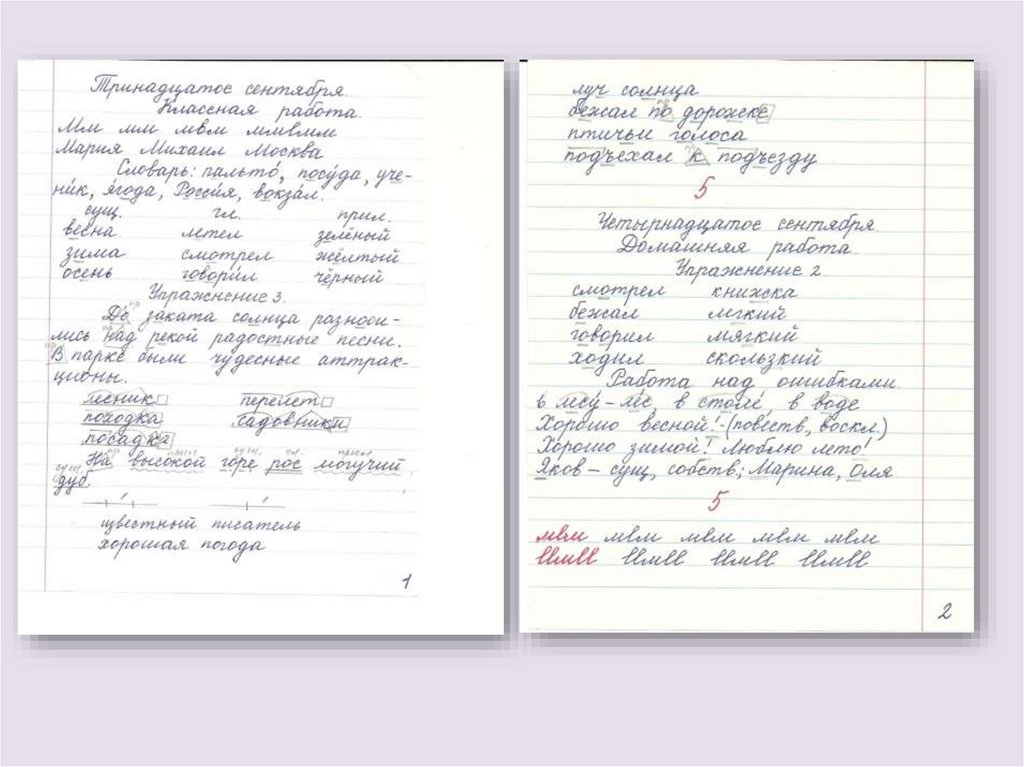 Тринадцатое сентября.
Классная работа.
Мм мм мвм ммвмм
Мария Михаил Москва
Словарь: пальто́, посу́да, уче-
ни́к, я́года, Росси́я, вокза́л.
сущ. гл. прил.
весна летел зелёный
зима смотрел жёлтый
осень говорил чёрный
Упражнение 3.
До заката солнца разноси-
лись над рекой радостные песни.
В парке были чудесные аттрак-
ционы.
лесник перелёт
походка садовники
посадка
На высокой горе рос могучий
дуб.
известный писатель
хорошая погода
1
луч солнца
бежал по дорожке
птичьи голоса
подъехал к подъезду
5
Четырнадцатое сентября
Домашняя работа.
Упражнение 2.
смотрел книжка
бежал лёгкий
говорил мягкий
ходил скользкий
Работа над ошибками
в лесу́ – лес, в столе́, в воде
Хорошо весной! - (повеств., воскл.)
Хорошо зимой! Люблю лето!
Яков – сущ., собств.; Марина, Оля
5
мвм мвм мвм мвм мвм